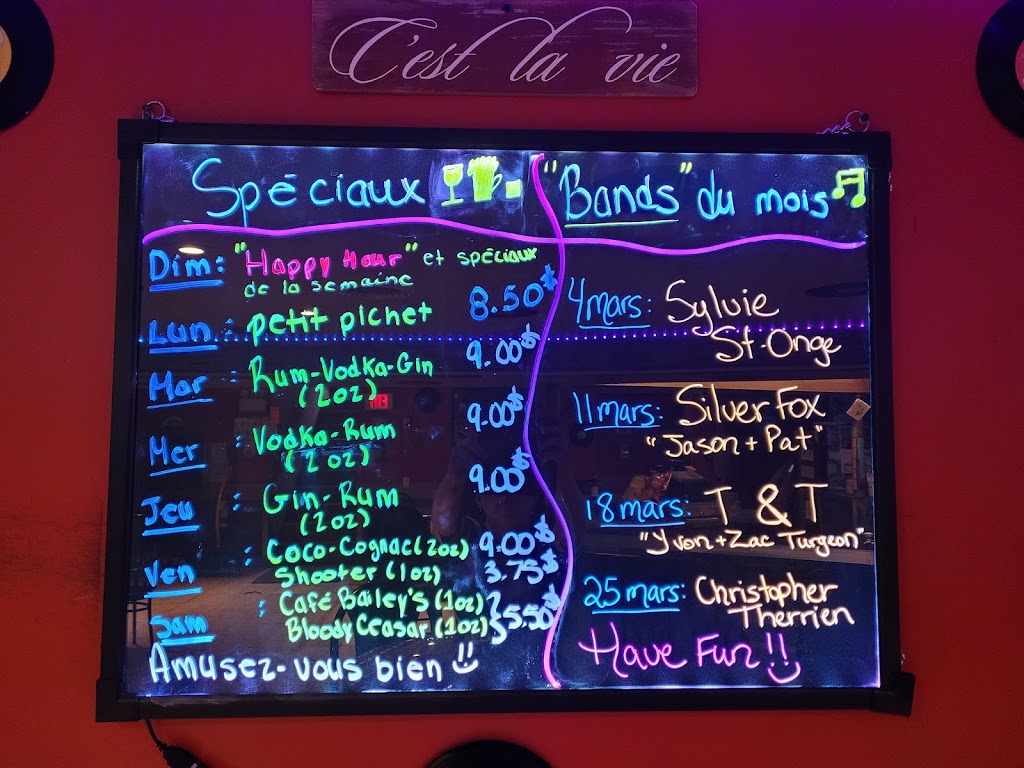 C'est la vie
Spéciaux
Dim: "Happy Hour" et spéciaux
de la semaine
Lun : petit pichet 8.50$
Mar : Rum-Vodka-Gin 9.00$
(2oz)
Mer : Vodka-Rum 9.00$
(2oz)
Jeu : Gin-Rum 9.00$
(2oz)
Ven : Coco-Cognac (2oz) 9.00$
Shooter (1oz) 3.75$
Sam : Café Bailey's (1oz)
Bloody Ceasar (1oz) } 5.50$
Amusez-vous bien !!
"Bands" du mois
4 mars: Sylvie
St-Onge
11 mars: Silver Fox
"Jason + Pat"
18 mars: T & T
"Yvon + Zac Turgeon"
25 mars: Christopher
Therrien
Have Fun!!